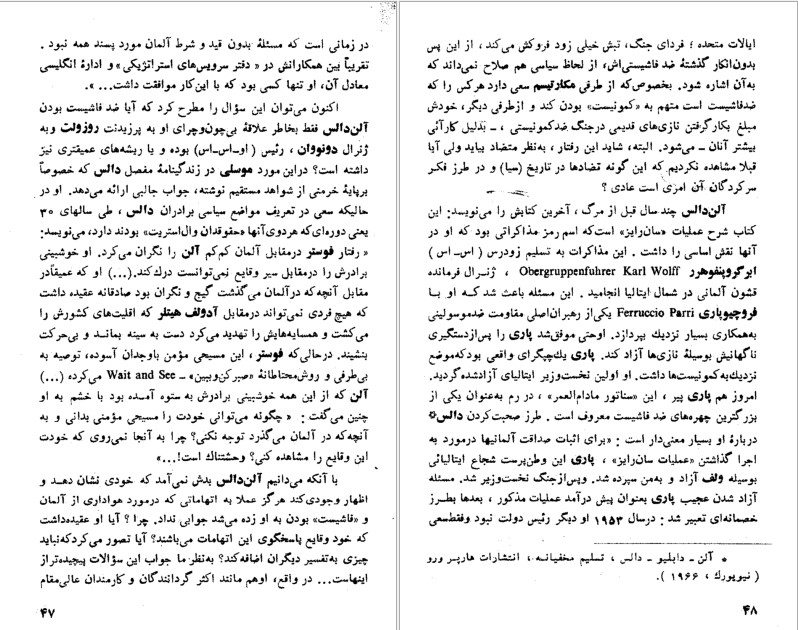 در زمانی است که مسئلهٔ بدون قید و شرط آلمان مورد پسند همه نبود .
تقریباً بین همکارانش در « دفتر سرویس‌های استراتژیکی» و ادارهٔ انگلیسی
معادل آن، او تنها کسی بود که با این‌کار موافقت داشت... ».
اکنون می‌توان این سؤال را مطرح کرد که آیا ضد فاشیست بودن
آلن‌دالس فقط بخاطر علاقهٔ بی‌چون‌وچرای او به پرزیدنت روزولت وبه
ژنرال دونووان ، رئیس (او-اس-اس) بوده و یا ریشه‌های عمیقتری نیز
داشته است؟ دراین مورد موسلی در زندگینامهٔ مفصل دالس که خصوصاً
برپایهٔ خرمنی از شواهد مستقیم نوشته، جواب جالبی ارائه می‌دهد. او در
حالیکه سعی در تعریف مواضع سیاسی برادران دالس ، طی سالهای ۳۰
یعنی دوره‌ای‌که هردوی‌آنها «حقوقدان وال‌استریت» بودند دارد، می‌نویسد:
« رفتار فوستر درمقابل آلمان کم‌کم آلن را نگران می‌کرد. او خوشبینی
برادرش را درمقابل سیر وقایع نمی‌توانست درك‌کند.(...) او که عمیقاًدر
مقابل آنچه‌که درآلمان می‌گذشت گیج و نگران بود صادقانه عقیده داشت
که هیچ‌فردی نمی‌تواند درمقابل آدولف هیتلر که اقلیت‌های کشورش را
می‌کشت و همسایه‌هایش را تهدید می‌کرد دست به سینه بمانـد و بی‌حرکت
بنشیند. درحالی‌که فوستر ، این مسیحی مؤمن باوجدان آسوده، توصیه به
بی‌طرفی و روش‌محتاطانهٔ «صبرکن‌وببین» ــ Wait and See می‌کرده (...)
آلن که از این همه خوشبینی برادرش به ستوه آمـده بود با خشم به او
چنین می‌گفت : « چگونه می‌توانی خودت را مسیحی مؤمنی بدانی و به
آنچه‌که در آلمان می‌گذرد توجه نکنی؟ چرا به آنجا نمی‌روی که خودت
این وقایع را مشاهده کنی؟ وحشتناك است!...»
با آنکه می‌دانیم آلن‌دالس بدش نمی‌آمد که خودی نشان دهـد و
اظهار وجودی‌کند هرگز عملا به اتهاماتی که درمورد هواداری از آلمان
و «فاشیست» بودن به او زده می‌شد جوابی نداد. چرا ؟ آیا او عقیده‌داشت
که خود وقایع پاسخگوی این اتهامات می‌باشند؟ آیا تصور می‌کردکه‌نباید
چیزی به‌تفسیر دیگران اضافه‌کند؟ به‌نظر‌ما جواب این سؤالات پیچیده‌تر‌از
اینهاست... در واقع، اوهم مانند اکثر گردانندگان و کارمندان عالی‌مقام
۴۷
ایالات متحده ؛ فردای جنگ، تبش خیلی زود فروکش می‌کند ، از این پس
بدون‌انکار گذشتهٔ ضد فاشیستی‌اش، از لحاظ سیاسی هم صلاح نمی‌داند که
به‌آن اشاره شود. بخصوص‌که از طرفی مکارتیسم سعی دارد هرکس را که
ضدفاشیست است متهم به «کمونیست» بودن کند و ازطرفی دیگر، خودش
مبلغ بکارگرفتن نازی‌های قدیمی درجنگ ضدکمونیستی ، ــ بدلیل کارآئی
بیشتر آنان ــ می‌شود. البته، شاید این رفتار ، به‌نظر متضاد بیاید ولی آیا
قبلا مشاهده نکردیم که این گونه تضادها در تاریخ (سیا) و در طرز فکـر
سرکردگان آن امری است عادی ؟
آلن‌دالس چند سال قبل از مرگ ، آخرین کتابش را می‌نویسد: این
کتاب شرح عملیات «سان‌رایز» است‌که اسم رمز مذاکراتی بود که او در
آنها نقش اساسی را داشت . این مذاکرات به تسلیم زودرس (اس‌ــ اس)
ابرگروپنفوهرر Obergruppenfuhrer Karl Wolff ، ژنـرال فرمانده
قشون آلمانی در شمال ایتالیا انجامید . این مسئله باعث شدکـه او بـا
فروچیوپاری Ferruccio Parri یکی‌از رهبران‌اصلی مقاومت ضدموسولینی
به‌همکاری بسیار نزدیك بپردازد. اوحتی موفق‌شد پاری را پس‌ازدستگیری
ناگهانیش بوسیلهٔ نازی‌ها آزاد کند. پاری یك‌چپگرای واقعی بودکه‌موضع
نزدیك‌به‌کمونیست‌ها داشت. او اولین نخست‌وزیر ایتالیای آزادشده‌گردید.
امروز هم پاری پیر ، این «سناتور مادام‌العمر» ، در رم به‌عنوان یکی از
بزرگترین چهره‌های ضد فاشیست معروف است . طرز صحبت‌کردن دالس*
دربارهٔ او بسیار معنی‌دار است : «برای اثبات صداقت آلمانیها درمورد به
اجرا گذاشتن «عملیات سان‌رایز» ، پاری این وطن‌پرست شجاع ایتالیائی
بوسیله ولف آزاد و به‌من سپرده شد. وپس‌ازجنگ نخست‌وزیر شد. مسئله
آزاد شدن عجیب پاری بعنوان پیش درآمد عملیات مذکور ، بعدها بطـرز
خصمانه‌ای تعبیر شد : درسال ۱۹۵۳ او دیگر رئیس دولت نبود وفقط‌سعی
* آلن ـ دابلیو ـ دالس ، تسلیم مخفیانـه ، انتشارات هارپـر ورو
( نیویورك ، ۱۹۶۶ ).
۴۸